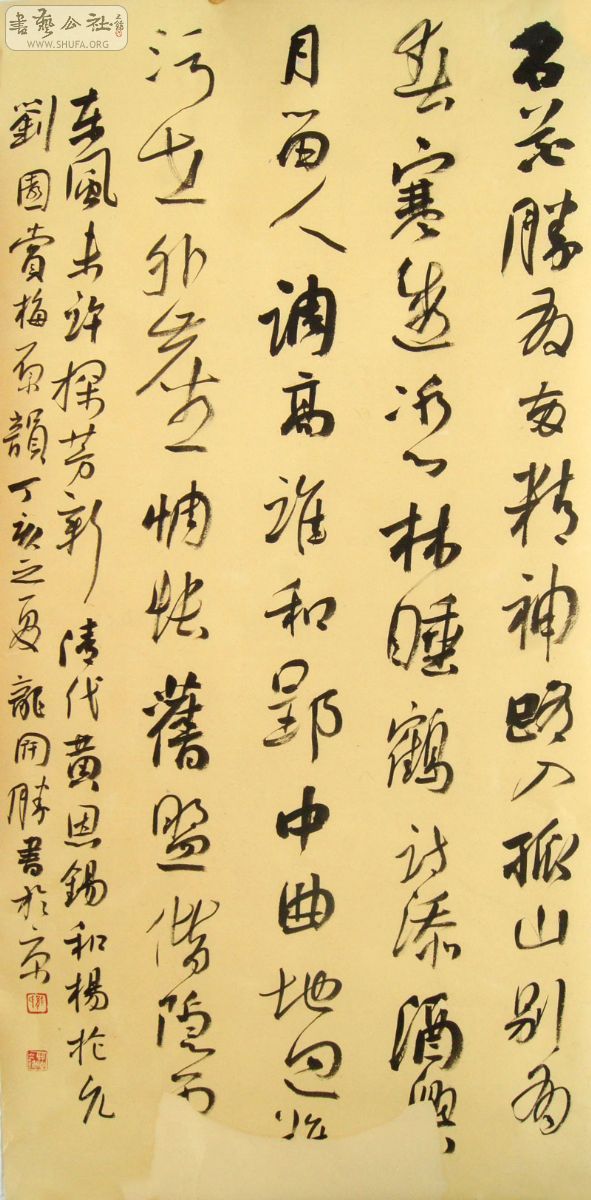 名花勝友两精神路入孤山别有
春寒透冰心林睡鶴詩添酒興
月留人調高誰和郢中曲地迥
污世外塵惆悵舊盟偕隐
東風未許探芳新 清代黄恩錫和楊於
劉園賞梅原韻丁亥之夏龍開勝書於京
書藝公社
WWW.SHUFA.ORG